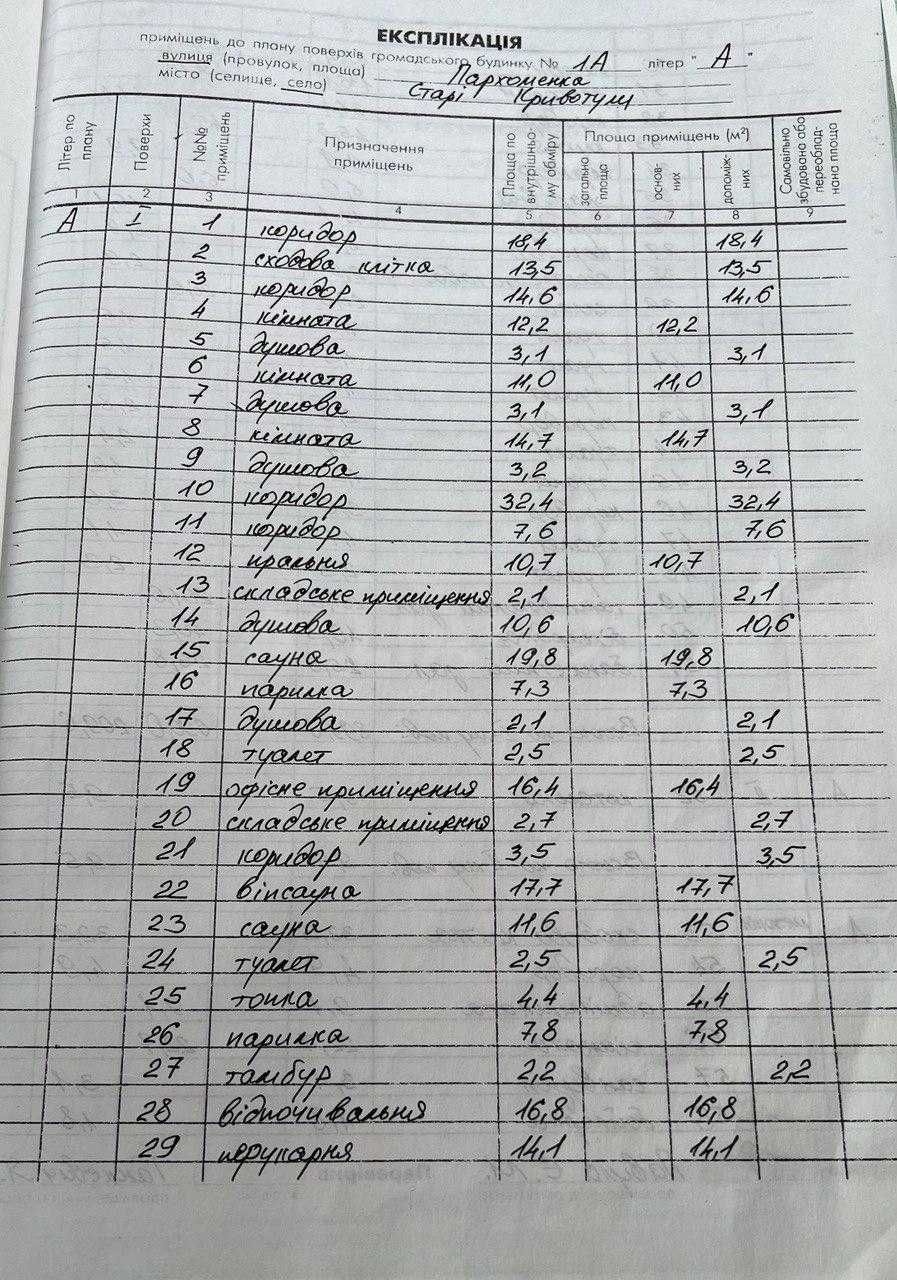 ЕКСПЛІКАЦІЯ
приміщень до плану поверхів громадського будинку № 1А літер " А "
вулиця (провулок, площа) Пархоменка
місто (селище, село) Старі Кривотули
Літер по плану Поверхи №№ приміщень Призначення приміщень Площа по внутрішньому обміру Площа приміщень (м²) загально площа основних допоміжних Самовільно збудована або переобладнана площа
1 2 3 4 5 6 7 8 9
А I 1 коридор 18,4 18,4
2 сходова клітка 13,5 13,5
3 коридор 14,6 14,6
4 кімната 12,2 12,2
5 душова 3,1 3,1
6 кімната 11,0 11,0
7 душова 3,1 3,1
8 кімната 14,7 14,7
9 душова 3,2 3,2
10 коридор 32,4 32,4
11 коридор 7,6 7,6
12 пральня 10,7 10,7
13 складське приміщення 2,1 2,1
14 душова 10,6 10,6
15 сауна 19,8 19,8
16 парилка 7,3 7,3
17 душова 2,1 2,1
18 туалет 2,5 2,5
19 офісне приміщення 16,4 16,4
20 складське приміщення 2,7 2,7
21 коридор 3,5 3,5
22 віпсауна 17,7 17,7
23 сауна 11,6 11,6
24 туалет 2,5 2,5
25 топка 4,4 4,4
26 парилка 7,8 7,8
27 тамбур 2,2 2,2
28 відпочивальня 16,8 16,8
29 перукарня 14,1 14,1